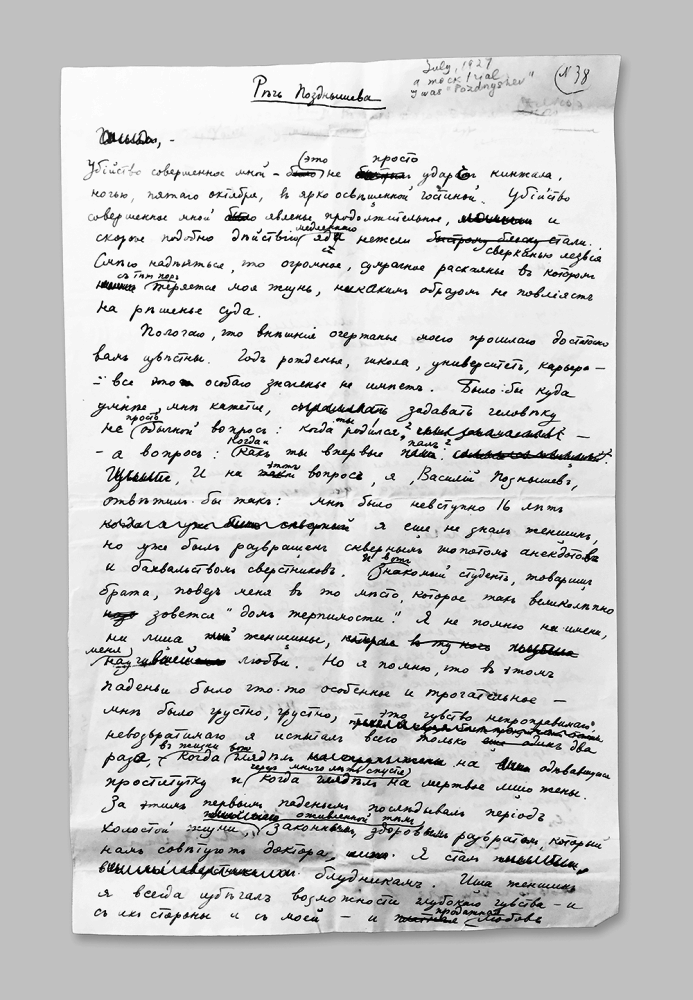 July, 1927
a mock trial
I was "Pozdnyshev"
N 38
Рѣчь Позднышева
(это просто
Убійство совершенное мной – не ударъ кинжала,
ночью, пятаго октября, въ ярко освѣщенной гостиной. Убійство
совершенное мной явленье продолжительное, и
медленнаго
скорѣе подобно дѣйствію яда нежели стали.
сверканью лезвія
Смѣю надѣяться, что огромное, сумрачное раскаянье въ которомъ
съ тѣхъ поръ
теряется моя жизнь, никакимъ образомъ не повліяетъ
на рѣшенье суда.
Полагаю, что внѣшнія очертанья моего прошлаго достаточно
вамъ извѣстны. Годъ рожденья, школа, университетъ, карьера –
– все это особаго значенья не имѣетъ. Было-бы куда
умнѣе, мнѣ кажется, задавать человѣку
просто ты
не обычной вопросъ: когда родился? –
Когда
– а вопросъ: ты впервые палъ?
И на этотъ вопросъ, я, Василій Позднышевъ,
отвѣтилъ-бы такъ: мнѣ было неступно 16 лѣтъ
я еще не зналъ женщинъ,
но уже былъ развращенъ сквернымъ шопотомъ анекдотовъ
и вотъ
и бахвальствомъ сверстниковъ. Знакомый студентъ, товарищъ
брата, повелъ меня въ то мѣсто, которое такъ великолѣпно
зовется "домъ терпимости". Я не помню ни имени,
ни лица женщины,
меня
научившей любви. Но я помню, что въ этомъ
паденьи было что-то особенное и трогательное –
мнѣ было грустно, грустно, – это чувство непоправимаго,
невозвратимаго я испыталъ всего только одинъ два
въ жизни вотъ
раза, когда глядѣлъ на одѣвавшуюся
черезъ много лѣтъ спустя)
проститутку и когда глядѣлъ на мертвое лицо жены.
За этимъ первымъ паденьемъ послѣдовалъ періодъ
оживленной тѣмъ
холостой жизни, законнымъ, здоровымъ развратомъ, который
намъ совѣтуютъ доктора. Я сталъ
блудникомъ. Ища женщинъ
я всегда избѣгалъ возможности глубокаго чувства – и
продажная
съ ихъ стороны и съ моей – и любовь